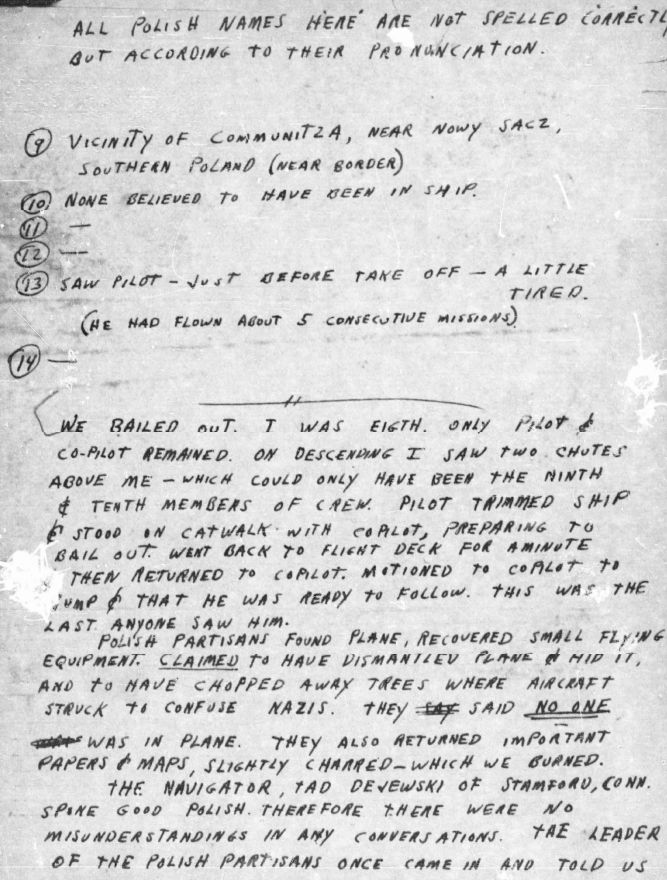 ALL POLISH NAMES HERE ARE NOT SPELLED CORRECTL
BUT ACCORDING TO THEIR PRONUNCIATION.
(9) VICINITY OF COMMUNITZA, NEAR NOWY SACZ,
SOUTHERN POLAND (NEAR BORDER)
(10) NONE BELIEVED TO HAVE BEEN IN SHIP.
(11) —
(12) —
(13) SAW PILOT – JUST BEFORE TAKE OFF – A LITTLE
TIRED.
(HE HAD FLOWN ABOUT 5 CONSECUTIVE MISSIONS)
(14) —
WE BAILED OUT. I WAS EIGTH. ONLY PILOT &
CO-PILOT REMAINED. ON DESCENDING I SAW TWO CHUTES
ABOVE ME – WHICH COULD ONLY HAVE BEEN THE NINTH
& TENTH MEMBERS OF CREW. PILOT TRIMMED SHIP
& STOOD ON CATWALK WITH COPILOT, PREPARING TO
BAIL OUT. WENT BACK TO FLIGHT DECK FOR A MINUTE
THEN RETURNED TO COPILOT. MOTIONED TO COPILOT TO
JUMP & THAT HE WAS READY TO FOLLOW. THIS WAS THE
LAST ANYONE SAW HIM.
POLISH PARTISANS FOUND PLANE, RECOVERED SMALL FLYING
EQUIPMENT. CLAIMED TO HAVE DISMANTLED PLANE & HID IT,
AND TO HAVE CHOPPED AWAY TREES WHERE AIRCRAFT
STRUCK TO CONFUSE NAZIS. THEY SAY SAID NO ONE
WAS IN PLANE. THEY ALSO RETURNED IMPORTANT
PAPERS & MAPS, SLIGHTLY CHARRED – WHICH WE BURNED.
THE NAVIGATOR, TAD DEJEWSKI OF STAMFORD, CONN.
SPOKE GOOD POLISH. THEREFORE THERE WERE NO
MISUNDERSTANDINGS IN ANY CONVERSATIONS. THE LEADER
OF THE POLISH PARTISANS ONCE CAME IN AND TOLD US